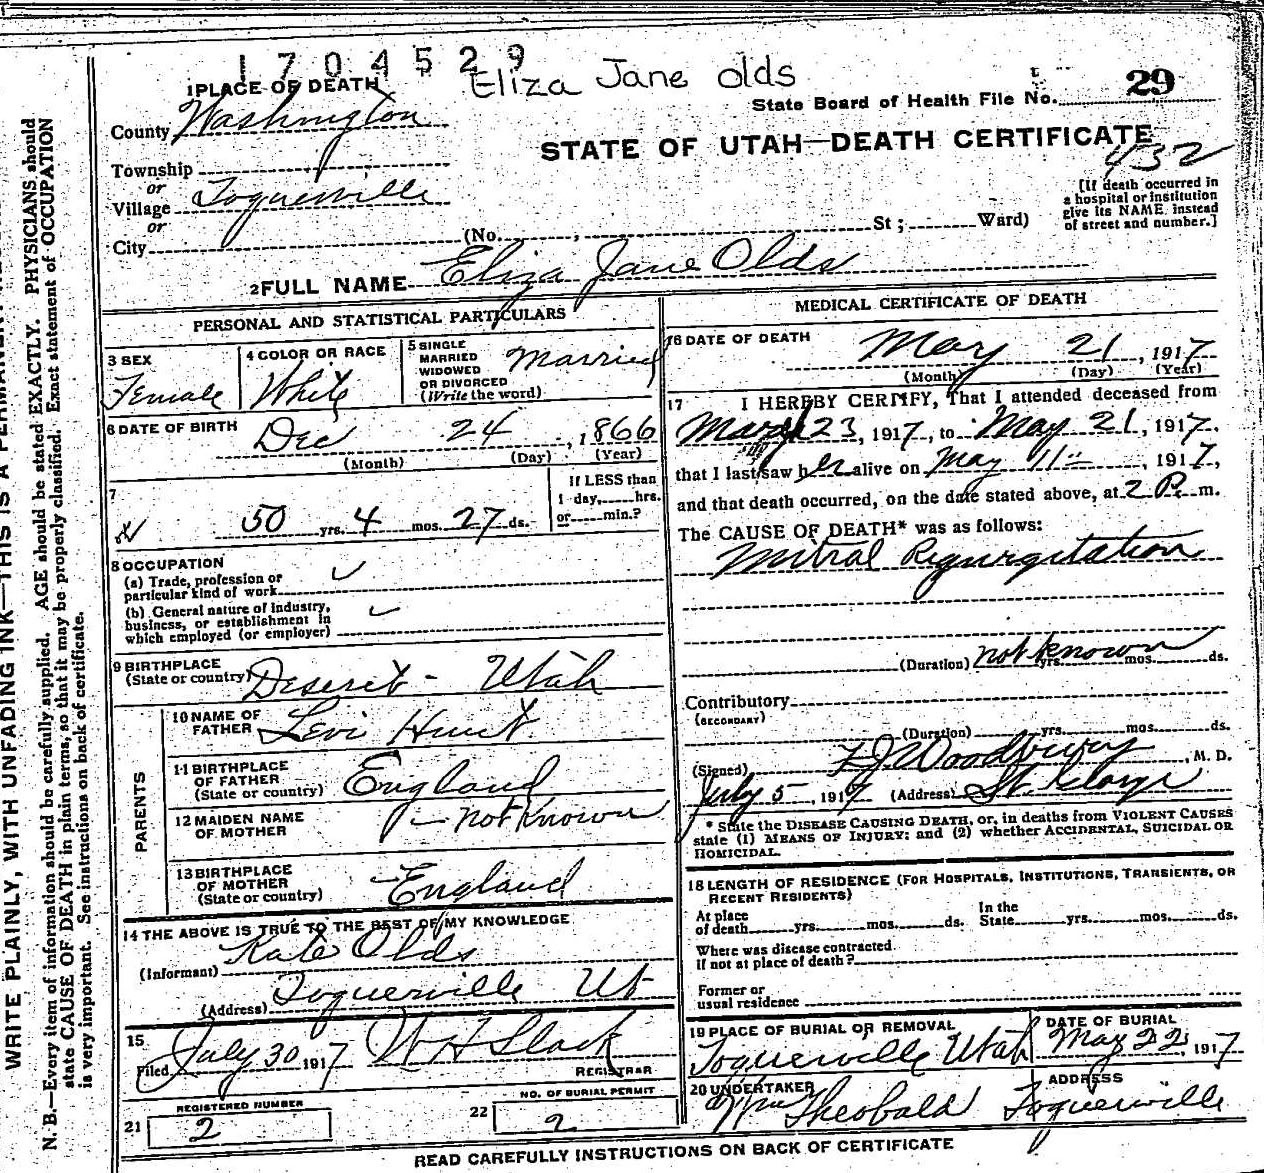 1704529
Eliza Jane Olds
1 PLACE OF DEATH
State Board of Health File No. 29
County Washington
STATE OF UTAH—DEATH CERTIFICATE
432
Township
or
Village Toquerville
or
City (No. , St; Ward)
[If death occurred in
a hospital or institution
give its NAME instead
of street and number.]
2 FULL NAME Eliza Jane Olds
PERSONAL AND STATISTICAL PARTICULARS
3 SEX
Female
4 COLOR OR RACE
White
5 SINGLE
MARRIED
WIDOWED
OR DIVORCED
(Write the word)
Married
6 DATE OF BIRTH
Dec 24, 1866
(Month) (Day) (Year)
7
50 yrs. 4 mos. 27 ds.
If LESS than
1 day, hrs.
or min.?
8 OCCUPATION
(a) Trade, profession or
particular kind of work
(b) General nature of industry,
business, or establishment in
which employed (or employer)
9 BIRTHPLACE
(State or country) Deseret - Utah
PARENTS
10 NAME OF
FATHER Levi Hunt
11 BIRTHPLACE
OF FATHER
(State or country) England
12 MAIDEN NAME
OF MOTHER - not known
13 BIRTHPLACE
OF MOTHER
(State or country) England
14 THE ABOVE IS TRUE TO THE BEST OF MY KNOWLEDGE
(Informant) Kate Olds
(Address) Toquerville Ut
15
Filed July 30 1917 W H Slack
REGISTRAR
REGISTERED NUMBER
21 2
NO. OF BURIAL PERMIT
22 2
MEDICAL CERTIFICATE OF DEATH
16 DATE OF DEATH
May 21, 1917
(Month) (Day) (Year)
17 I HEREBY CERTIFY, That I attended deceased from
March 23, 1917, to May 21, 1917.
that I last saw her alive on May 11, 1917,
and that death occurred, on the date stated above, at 2 P. m.
The CAUSE OF DEATH* was as follows:
Mitral Regurgitation
(Duration) not known yrs. mos. ds.
Contributory
(SECONDARY)
(Duration) yrs. mos. ds.
(Signed) F J Woodbury, M. D.
July 5, 1917 (Address) St. George
* State the DISEASE CAUSING DEATH, or, in deaths from VIOLENT CAUSES
state (1) MEANS OF INJURY; and (2) whether ACCIDENTAL, SUICIDAL OR
HOMICIDAL.
18 LENGTH OF RESIDENCE (FOR HOSPITALS, INSTITUTIONS, TRANSIENTS, OR
RECENT RESIDENTS)
At place
of death yrs. mos. ds.
In the
State yrs. mos. ds.
Where was disease contracted
if not at place of death?
Former or
usual residence
19 PLACE OF BURIAL OR REMOVAL
Toquerville Utah
DATE OF BURIAL
May 22, 1917
20 UNDERTAKER
Wm Theobald
ADDRESS
Toquerville
READ CAREFULLY INSTRUCTIONS ON BACK OF CERTIFICATE
WRITE PLAINLY, WITH UNFADING INK—THIS IS A
N. B.—Every item of information should be carefully supplied. AGE should be stated EXACTLY. PHYSICIANS should
state CAUSE OF DEATH in plain terms, so that it may be properly classified. Exact statement of OCCUPATION
is very important. See instructions on back of certificate.